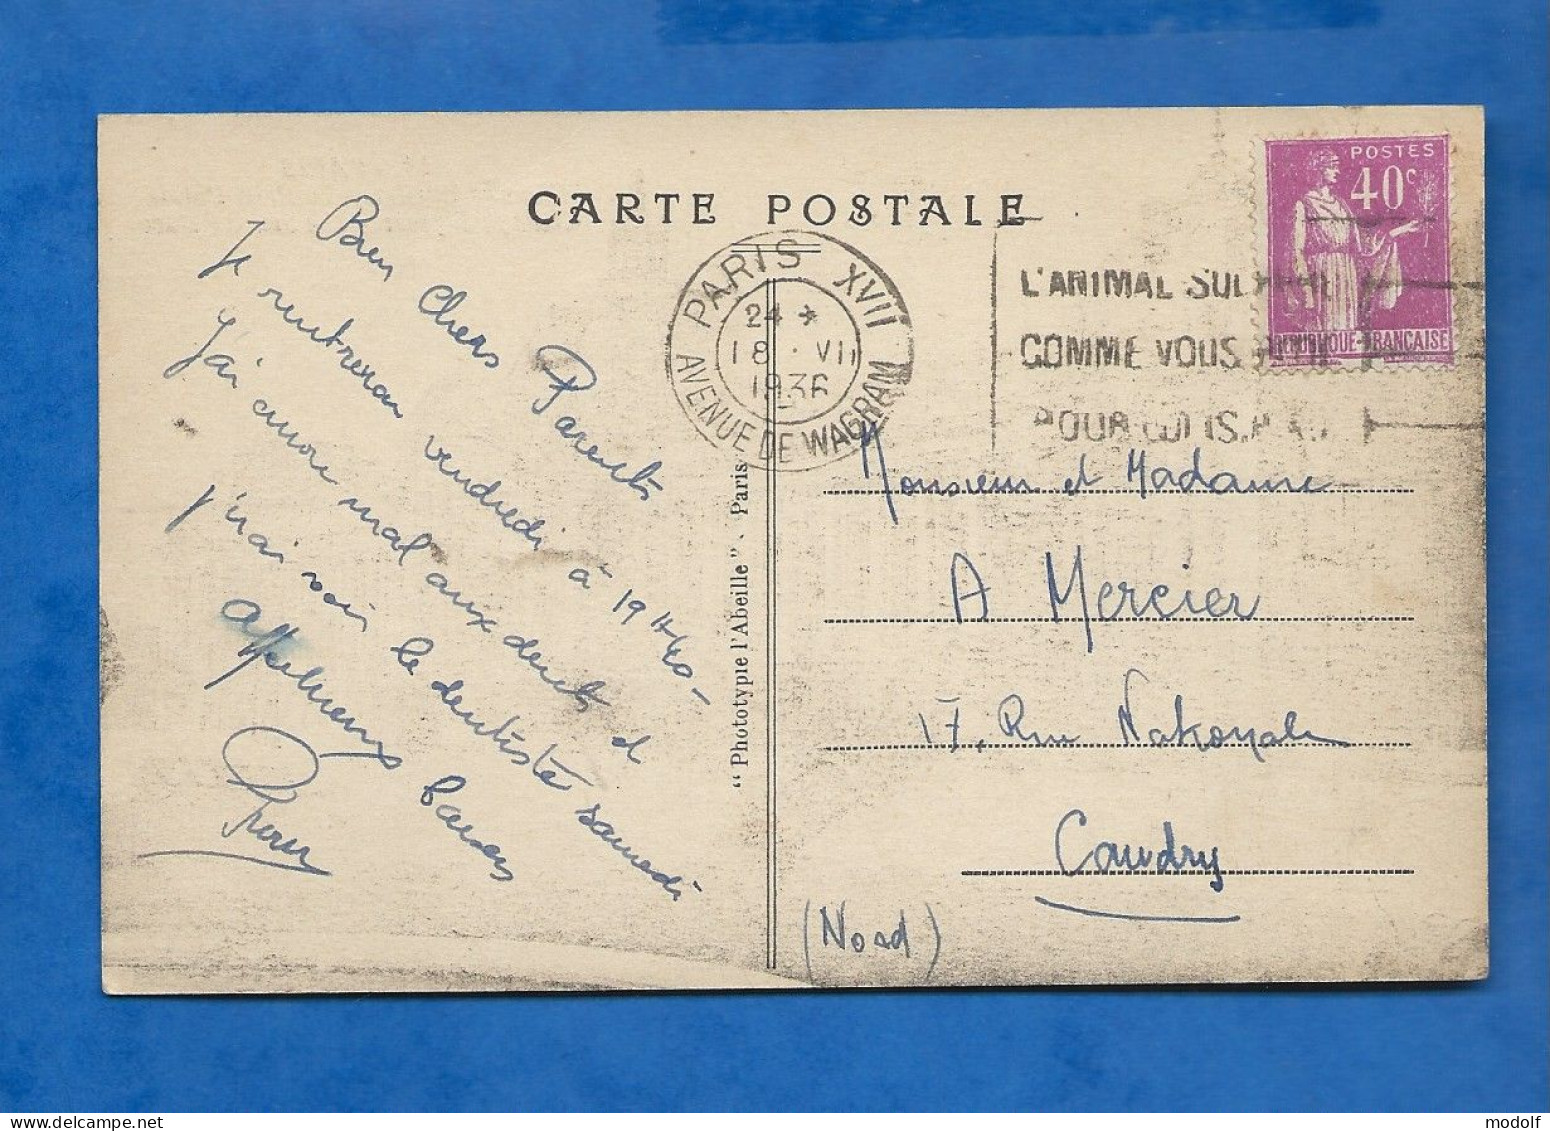 CARTE POSTALE
POSTES
40c
RÉPUBLIQUE FRANÇAISE
PARIS XVII
24 *
18 · VII
1936
AVENUE DE WAGRAM
L'ANIMAL
COMME VOUS
POUR LUI
Bien Chers Parents
Je rentrerai vendredi à 19 H 40 -
J'ai encore mal aux dents et
j'irai voir le dentiste samedi
Affectueux baisers
"Phototypie l'Abeille" - Paris
Monsieur et Madame
A Mercier
17, Rue Nationale
Caudry
(Nord)
modolf